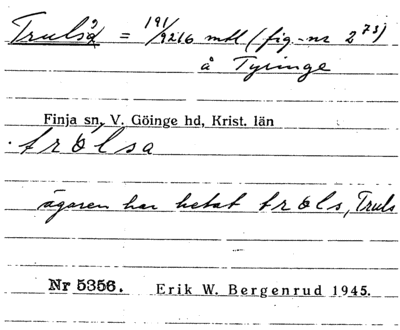 Trulsa = 191/9216 mtl (fig-nr 2⁷³)
å Tyringe
Finja sn, V. Göinge hd, Krist. län
trolsa
ägaren har hetat trols, Truls
Nr 5356. Erik W. Bergenrud 1945.